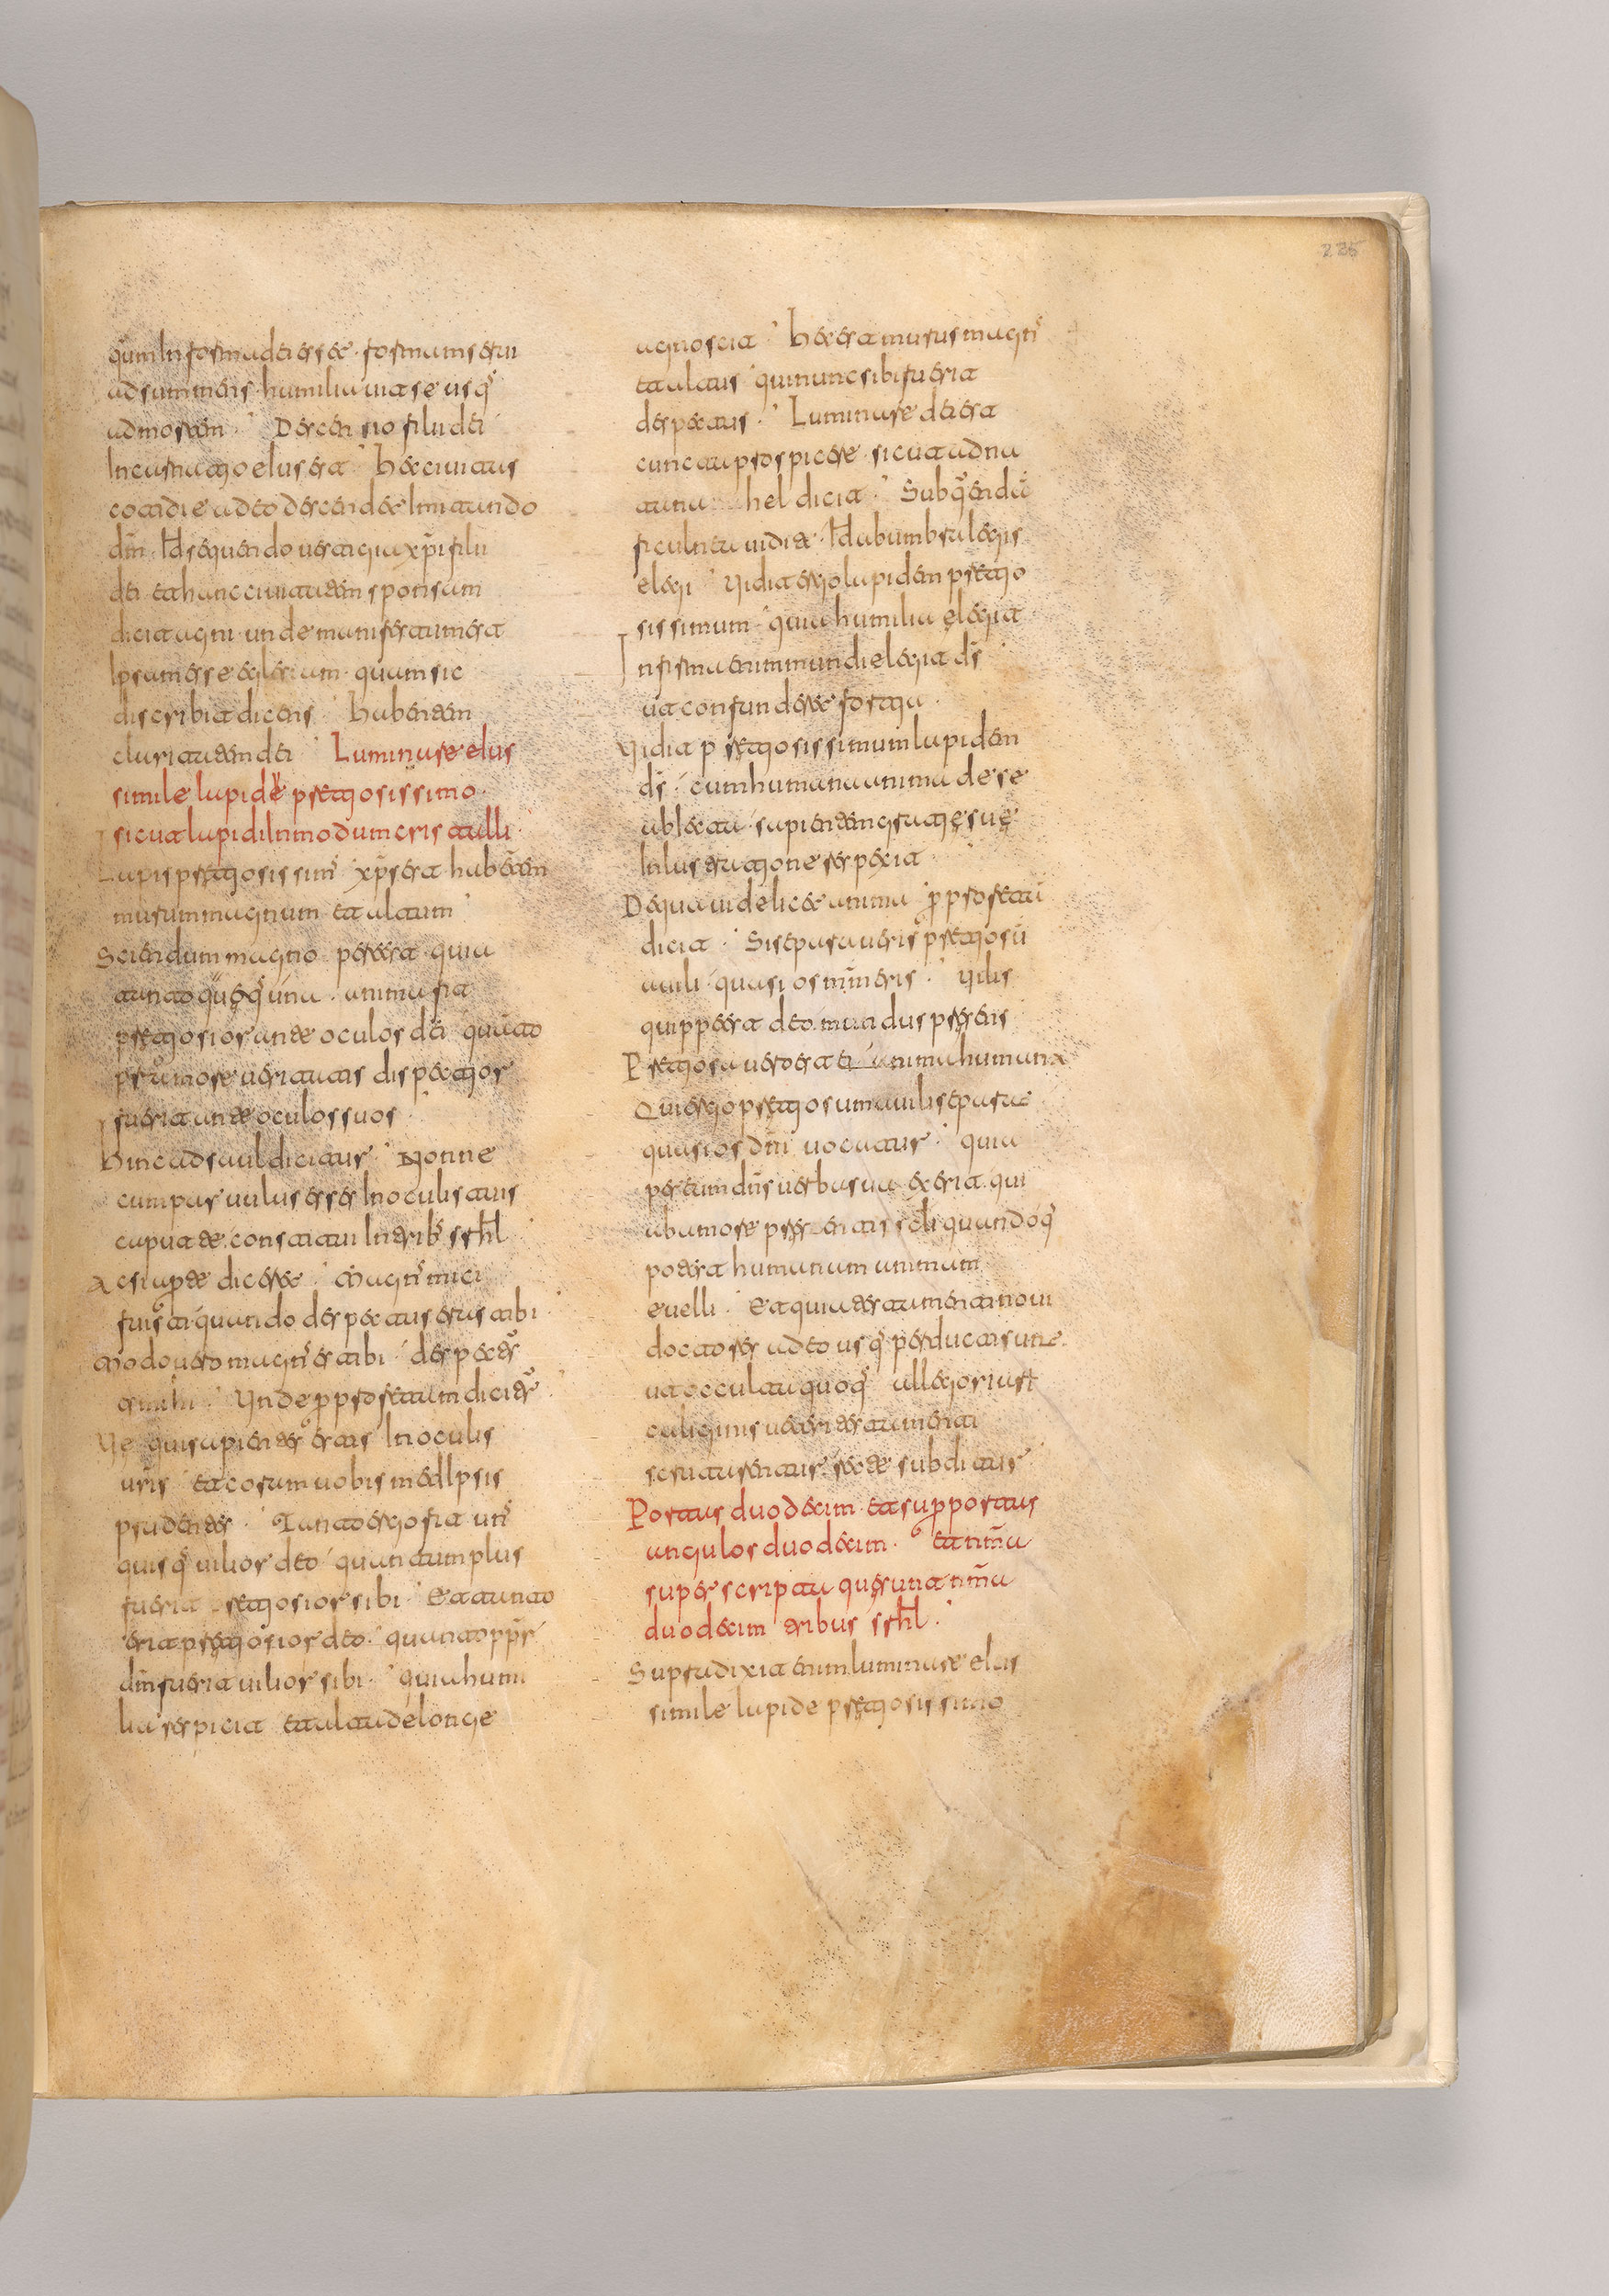 qum In forma dei esset · formam serui
adsummens · humiliauit se usq
ad mortem · Descensio filii dei
Incarnatio eius est · hec ciuitas
cotidie a deo descendet Imitando
dnm · Id sequendo uestigia xpi filii
dei et hanc ciuitatem sponsam
dicit agni · unde manifestum est
Ipsam esse eclesiam · quam sic
discribit dicens · habentem
claritatem dei · Luminare eius
simile lapide pretiosissimo ·
sicut lapidi In modum cristalli ·
Lapis pretiosissimus xps est habentem
murum magnum et altum ·
Sciendum magno pere est quia
tanto queq una · anima fit
pretiosior ante oculos dei quanto
pre amore ueritatis dispectior
fuerit ante oculos suos ·
hinc ad saul dicitur · Nonne
cum paruulus esses In oculis tuis
caput te constitui In tribus srhl
Ac si aperte diceret · Magnus mici
fuisti · quando despectus eras tibi ·
Modo uero magnus es tibi · despectus
es mihi · Unde per profetam dicitur ·
Ue qui sapientes estis In oculis
uris et coram uobis medIpsis
prudentes · Tanto ergo fit unus
quisq uilior deo quantum plus
fuerit pretiosior sibi · Et tanto
erit pretiosior deo · quanto propter
dnm fuerit uilior sibi · quia humi
lia respicit et alta de longe
agnoscit · hec est murus magnus
et altus qui nunc sibi fuerit
despectus · Luminare dei est
cuncta prospicere · sicut ad na
tana hel dicit · Sub quendam
ficulnea uidi te · Id ab umbra legis
elegi Uidit ergo lapidem pretio
sissimum · quia humilia elegit
Infirma enim mundi elegit ds
ut confunderet fortia ·
Uidit pretiosissimum lapidem
ds · cum humana anima de se
ablecta · sapientem gratie sue
Inlustratione respexit
De qua uidelicet anima per profetam
dicit · Si separaueris pretiosum
a uili · quasi os meum eris · Uilis
quippe est deo mundus presens
Pretiosa uero est ei anima humana
Qui ergo pretiosum a uili separat
quasi os dni uocatur · quia
per eum dns uerba sua exerit · qui
ab amore presentis scli quandoq
poterit humanum animam
euelli · Et quia testamenti noui
doctores ad eo usq perducti sunt
ut occulta quoq allegoriarum
caliginis ueteri testamenti
scrutarentur · recte subditur
Portas duodecim · et super portas
angulos duodecim · et nma
superscripta que sunt nma
duodecim tribus srhl ·
Supra dixit enim luminare eius
simile lapide pretiosissimo
225